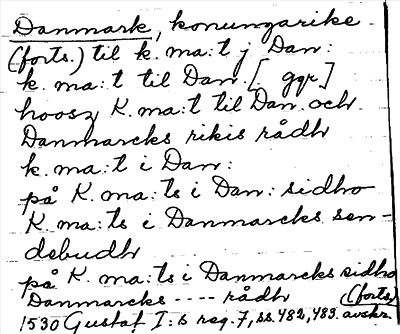 Danmark, konungarike
(forts.) til k. ma:t j Dan:
k. ma:t til Dan. [ ggr]
hoosz K. ma:t til Dan. och
Danmarcks rikis rådh
k. ma:t i Dan:
på K. ma:ts i Dan: sidho
K. ma:ts i Danmarcks sen-
debudh
på K. ma:ts i Danmarcks sidho
Danmarcks ---- rådh (forts)
1530 Gustaf I:s reg. 7, ss. 482, 483. avskr.